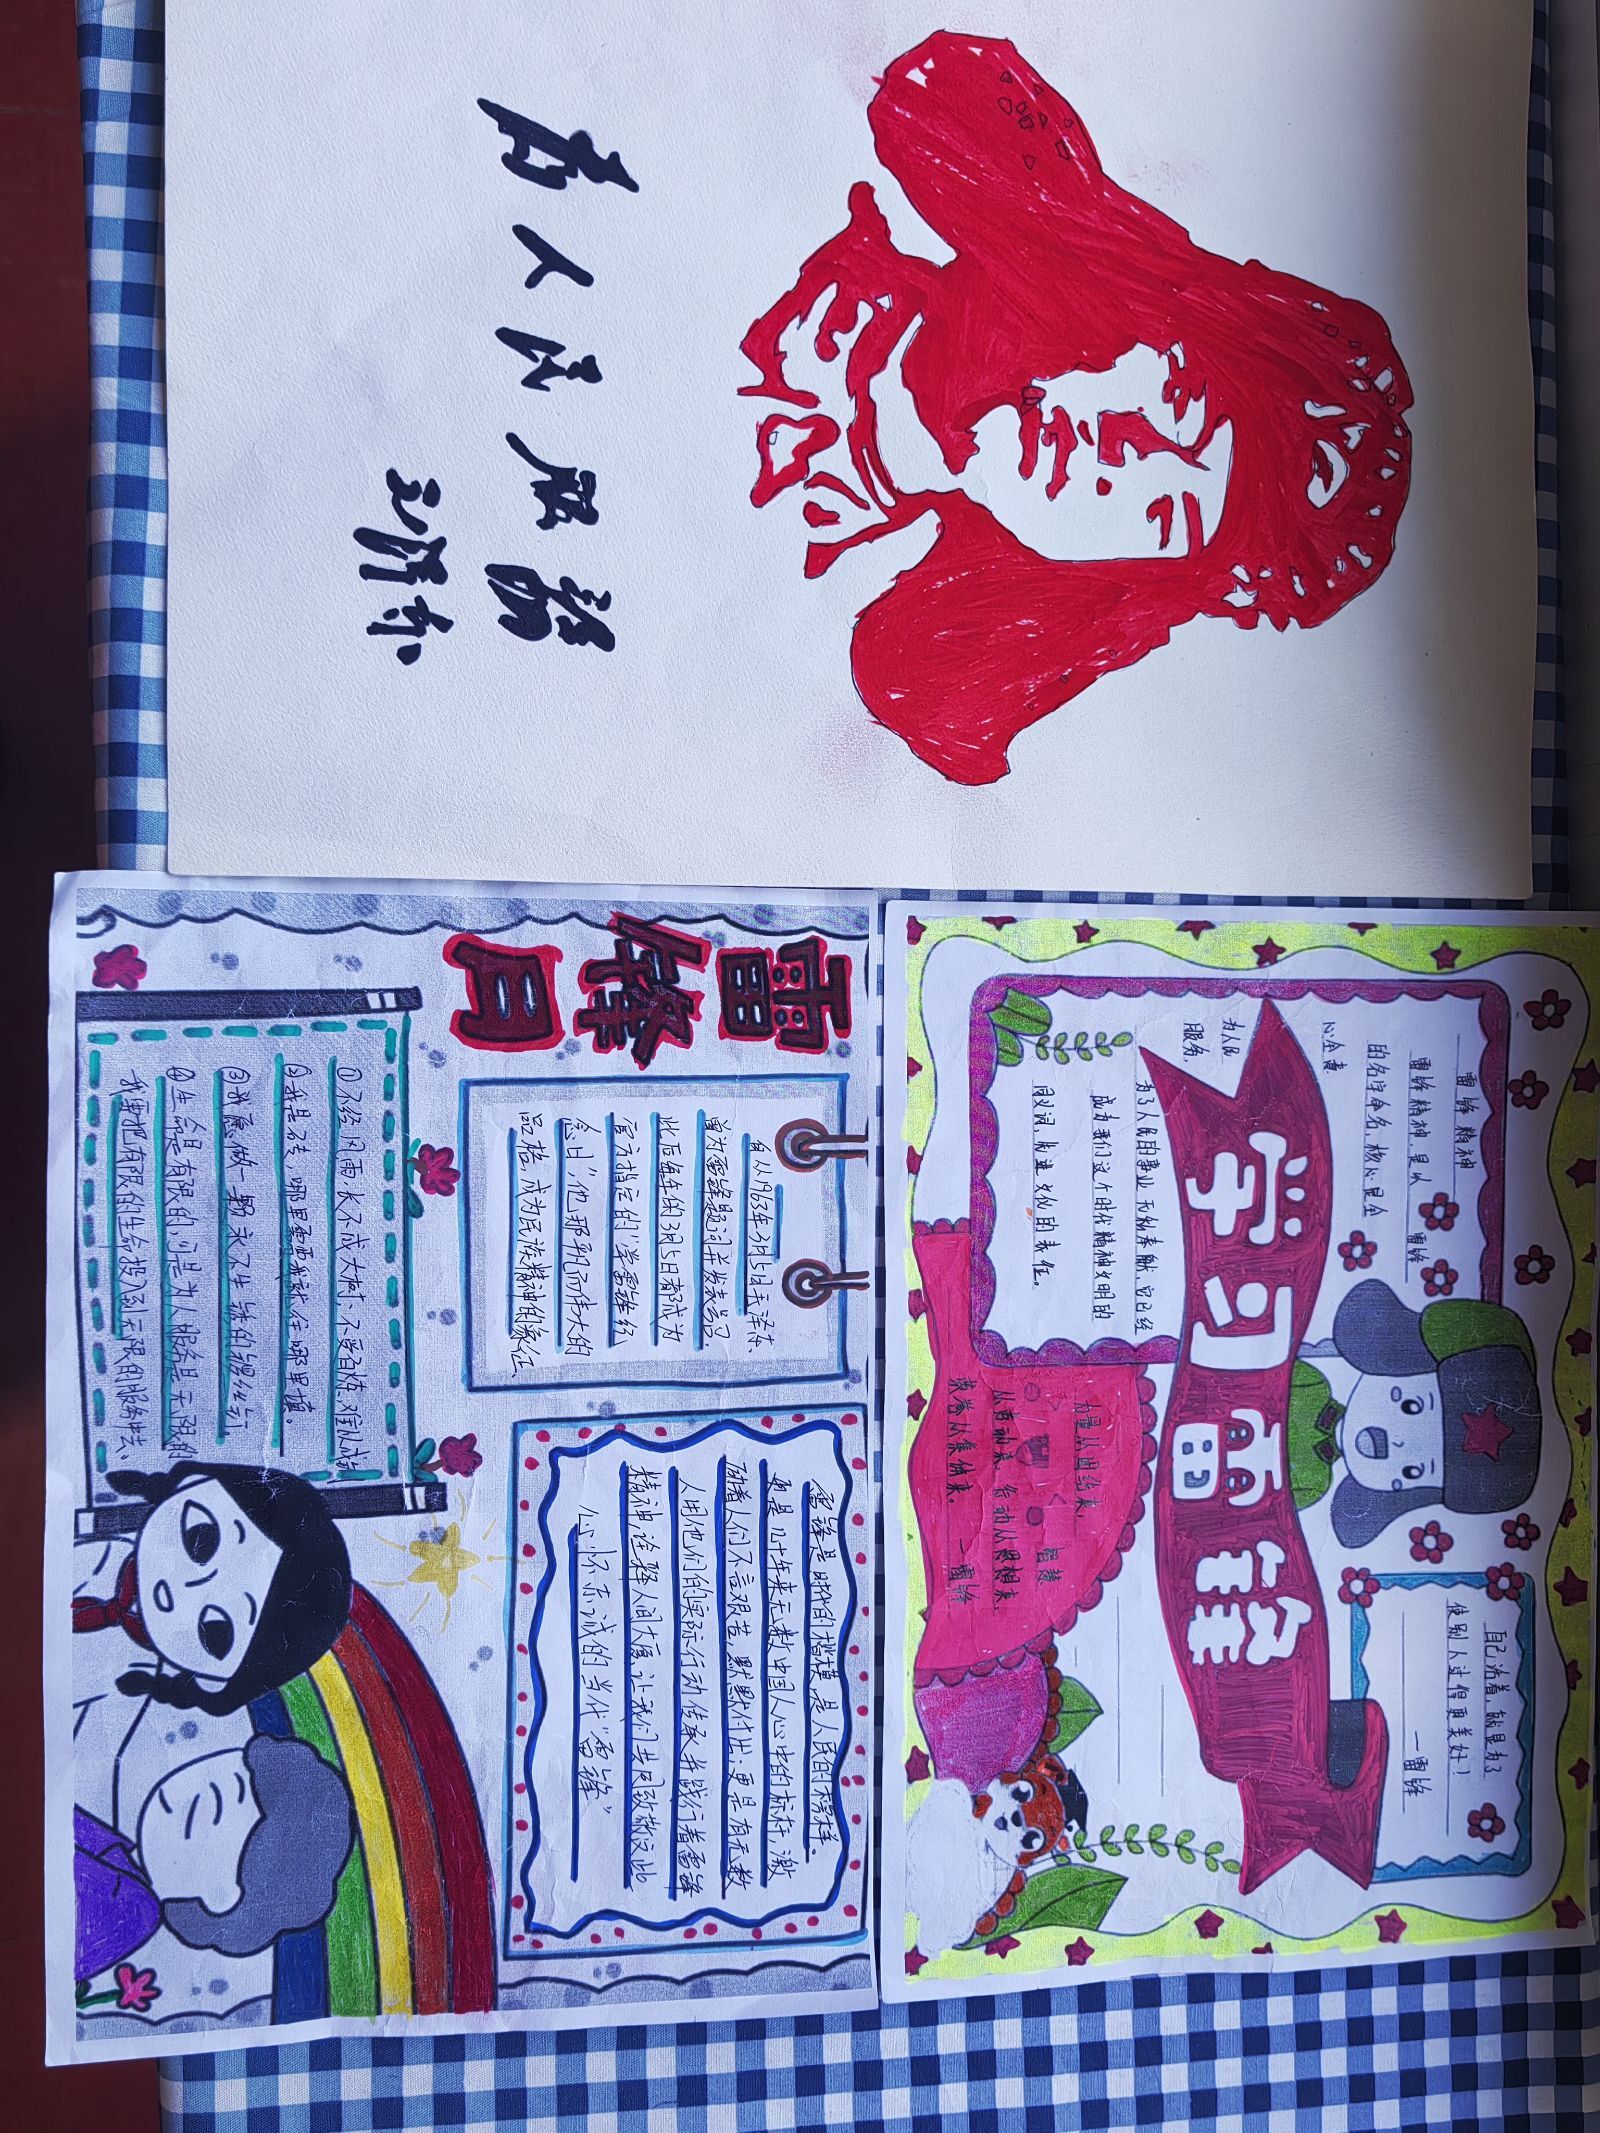 为人民服务
学习雷锋
雷锋精神
雷锋精神是从 雷锋
的名字命名,核心是全
心全意
为人民
服务
为了人民的事业无私奉献,它已经
成为我们这个时代精神文明的
同义词,先进文化的表征。
自己活着,就是为了
使别人过得更美好!
—雷锋
力量从团结来,
智慧
从劳动来,行动从思想来,
荣誉从集体来。
—雷锋
雷锋月
自从1963年3月5日毛泽东
曾为雷锋题词并发表学习,
此后每年的3月5日都成为
官方指定的“学雷锋纪
念日”他那平凡而伟大的
品格,成为民族精神的象征
雷锋是我们的楷模,是人民的榜样。
更是几十年来无数中国人心中的标杆,激
励着人们不言艰苦,默默付出;更是有无数
人用他们的实际行动传承并践行着雷锋
精神,诠释人间大爱,让我们共同致敬这些
心怀赤诚的当代“雷锋”
①不经风雨,长不成大树;不受百炼,难以成钢
②我是方法,哪里需要我就往哪里填。
③我愿做一颗永不生锈的螺丝钉。
④生命是有限的,可是为人服务是无限的
我要把有限的生命投入到无限的服务中去。